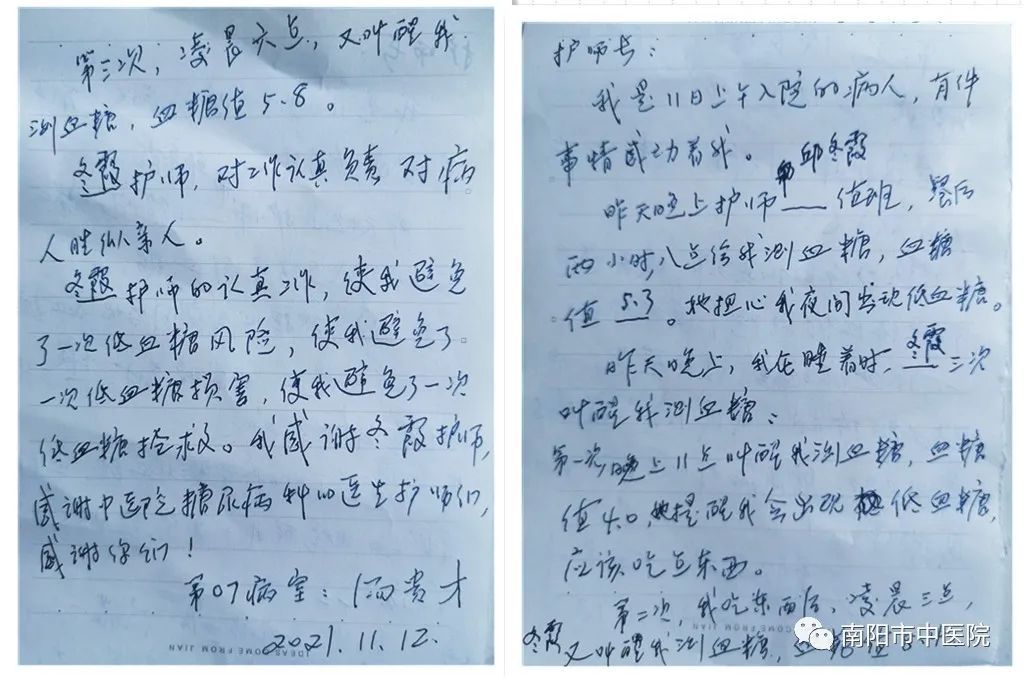 护师长：
我是11日上午入院的病人，有件
事情感动着我。
邱冬霞
昨天晚上护师 值班，餐后
两小时，八点给我测血糖，血糖
值 5.3。她担心我夜间出现低血糖。
冬霞
昨天晚上，我在睡着时， 三次
叫醒我测血糖：
第一次晚上11点叫醒我测血糖，血糖
值4.0，她提醒我会出现 低血糖，
应该吃点东西。
第二次，我吃东西后，凌晨三点，
冬霞又叫醒我测血糖，血糖值
南阳市中医院
第三次，凌晨六点，又叫醒我
测血糖，血糖值5.8。
冬霞护师，对工作认真负责 对病
人胜似亲人。
冬霞护师的认真工作，使我避免
了一次低血糖风险，使我避免了
一次低血糖损害，使我避免了一次
低血糖抢救。我感谢冬霞护师，
感谢中医院糖尿病科的医生护师们，
感谢你们！
第07病室：汤贵才
2021.11.12.
IDEAS COME FROM JIAN